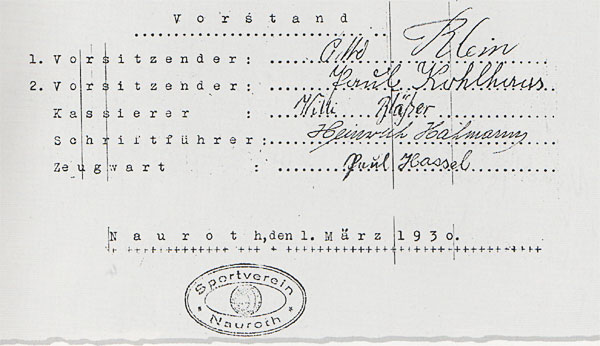 Vorstand
1. Vorsitzender: Otto Klein
2. Vorsitzender: Paul Kohlhaas
Kassierer : Willi
Schriftführer: Heinrich
Zeugwart : Paul Hassel
Nauroth, den 1. März 1930.
Sportverein
Nauroth